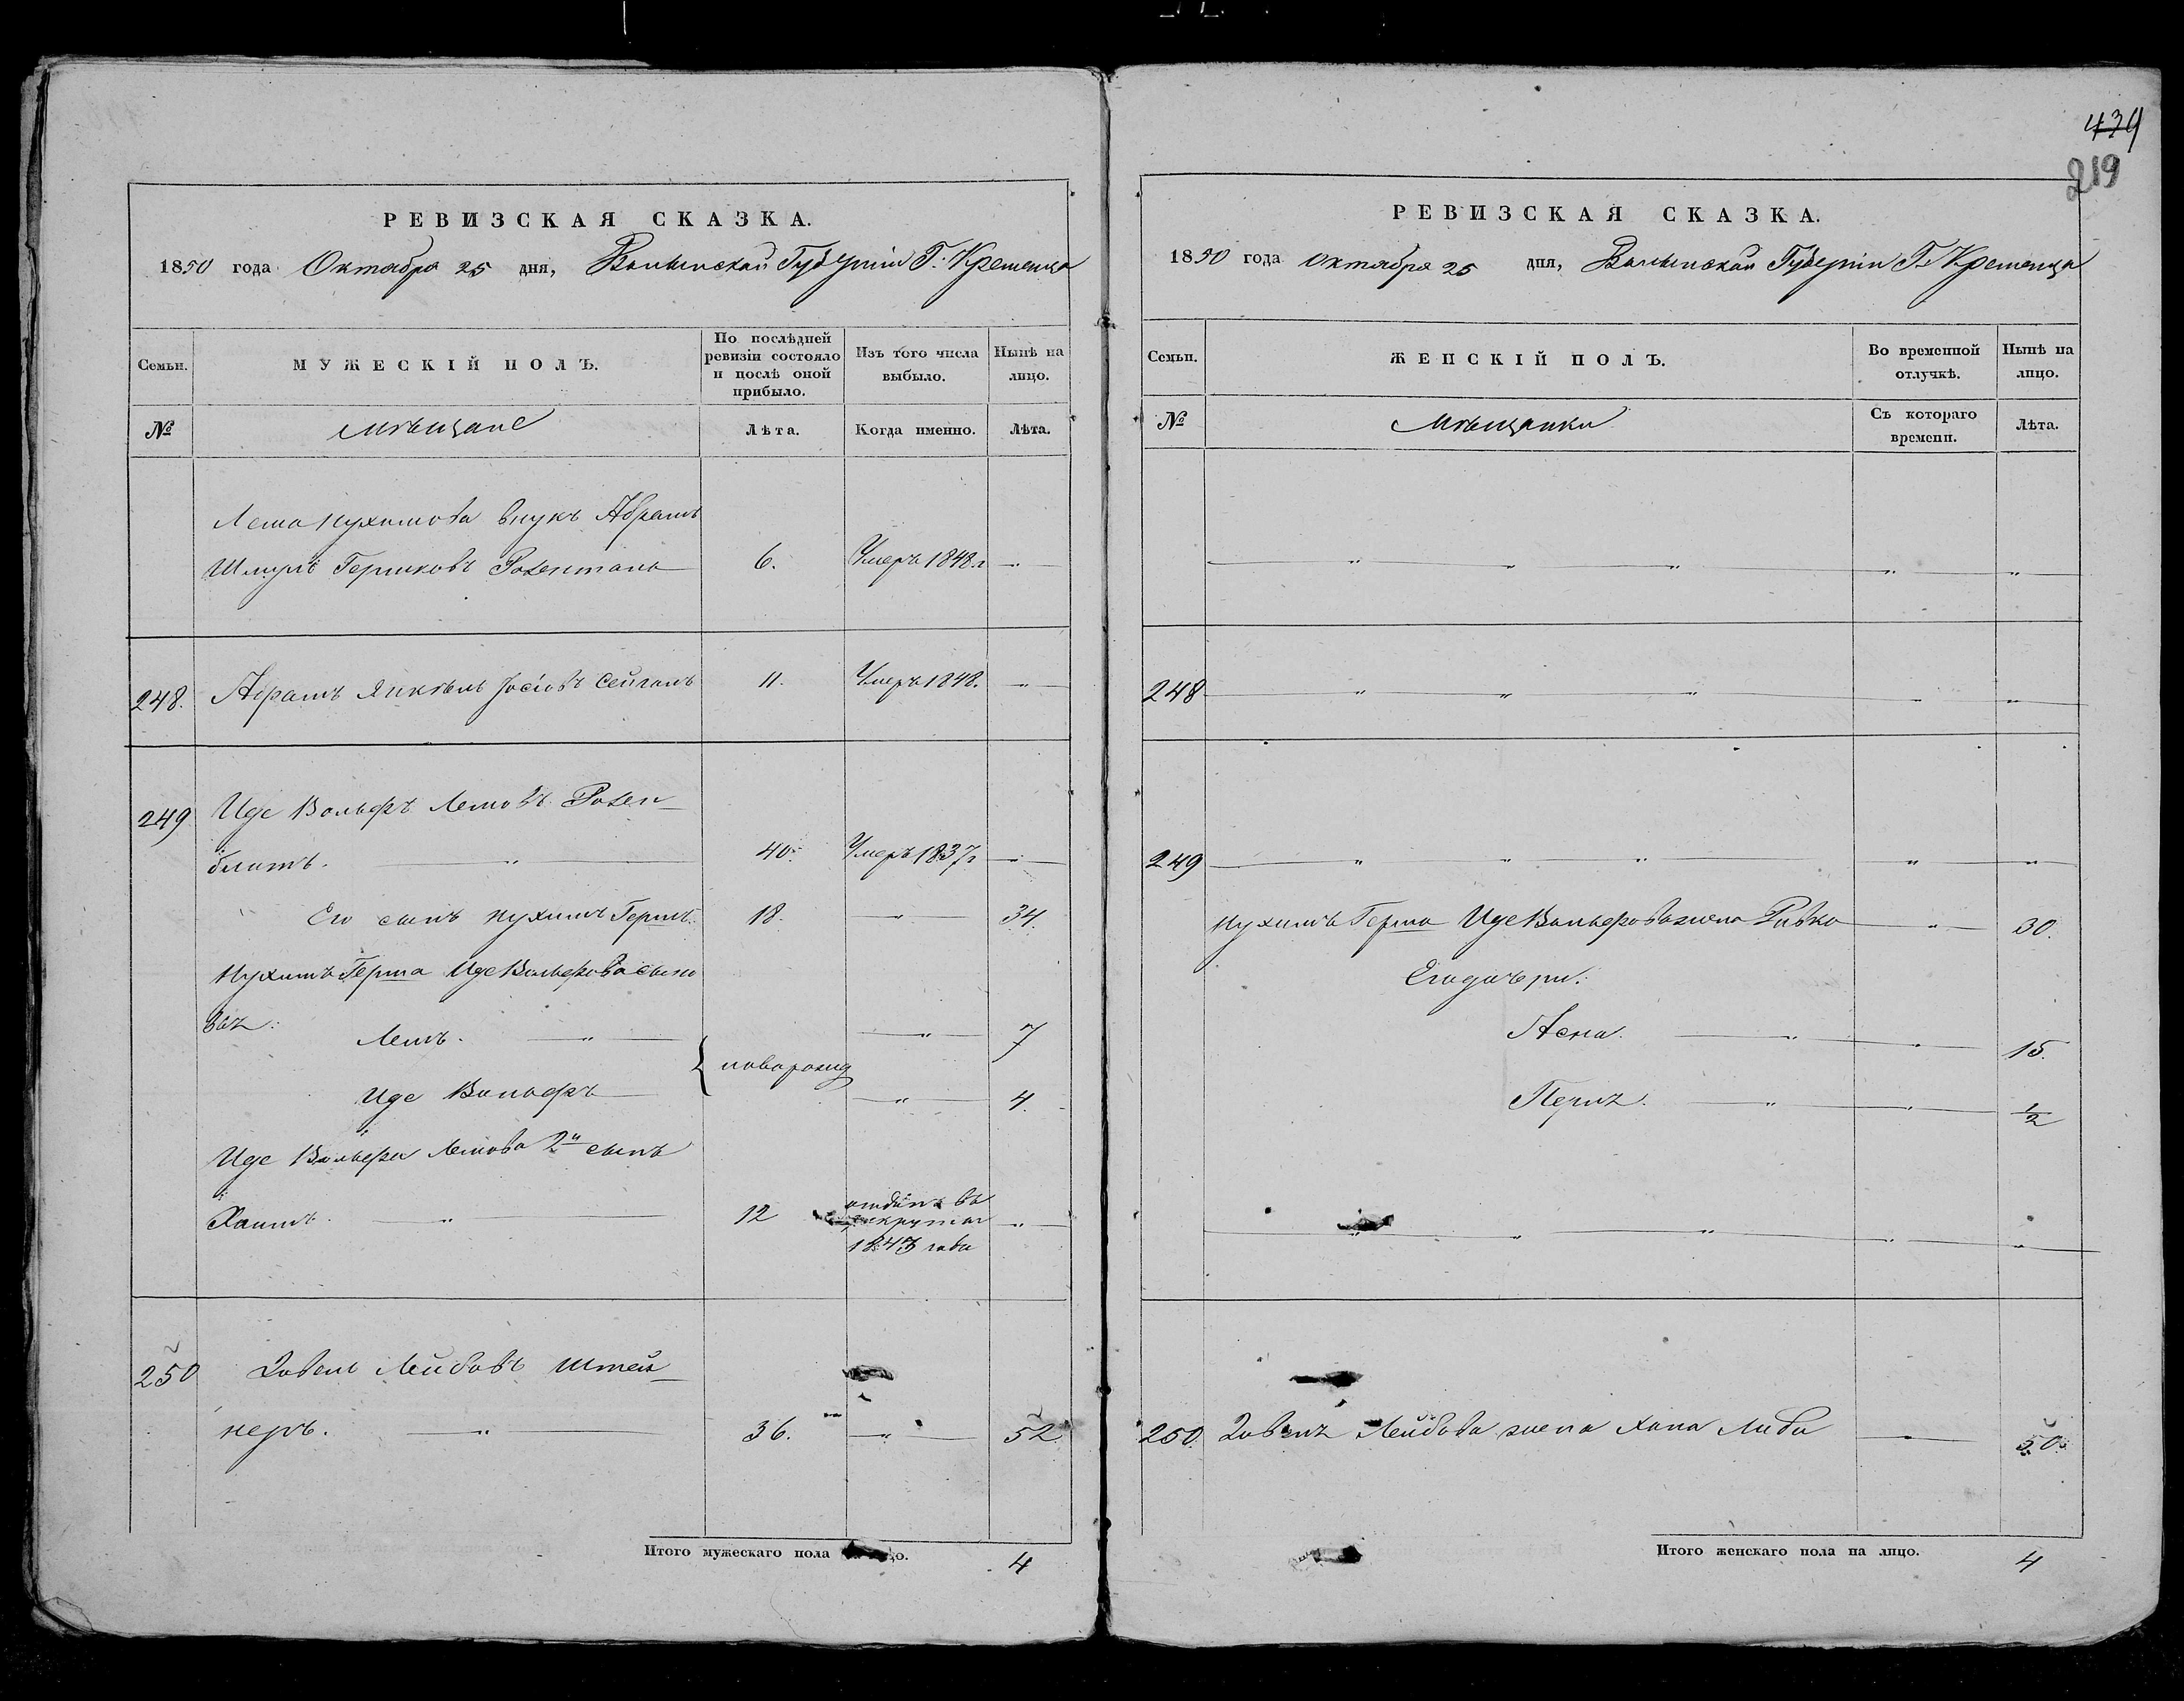 439
219
РЕВИЗСКАЯ СКАЗКА.
1850 года Октября 25 дня, Волынской Губерніи Г. Кременца
Семьи. МУЖЕСКІЙ ПОЛЪ. По послѣдней ревизіи состояло и послѣ оной прибыло. Изъ того числа выбыло. Нынѣ на лицо.
№ Мѣщане Лѣта. Когда именно. Лѣта.
Лемо Нухимова внукъ Абрамъ
Шмуль Гершковъ 6. Умеръ 1848 г "
248. Абрамъ Янкель Іосіовъ 11. Умеръ 1848. "
249 Иде Вольфъ Лемовъ Розен
блитъ. " 40. Умеръ 1837 г "
Его сынъ Нухимъ Гершъ 18. " 34.
Нухимъ Герша Иде Вольфова сыно
вья:
Лемъ. " новорожд " 7
Иде Вольфъ " 4.
Иде Вольфа Лемова 2й сынъ
Хаимъ. " 12 отданъ въ рекруты 1843 года "
250 Довель Лейбовъ Штей
неръ. " 36. " 52
Итого мужескаго пола 4
РЕВИЗСКАЯ СКАЗКА.
1850 года Октября 25 дня, Волынской Губерніи Г. Кременца
Семьи. ЖЕНСКІЙ ПОЛЪ. Во временной отлучкѣ. Нынѣ на лицо.
№ Мѣщанки Съ котораго времени. Лѣта.
" " " " "
248 " " " " "
249 " " " " "
Нухимъ Герша Иде Вольфова жена Ривка " 30.
Его дочери:
Асна. " " 15.
Перля. " " 1/2
" " " " "
250. Довеля Лейбова жена Хана Либа " 50.
Итого женскаго пола на лицо. 4